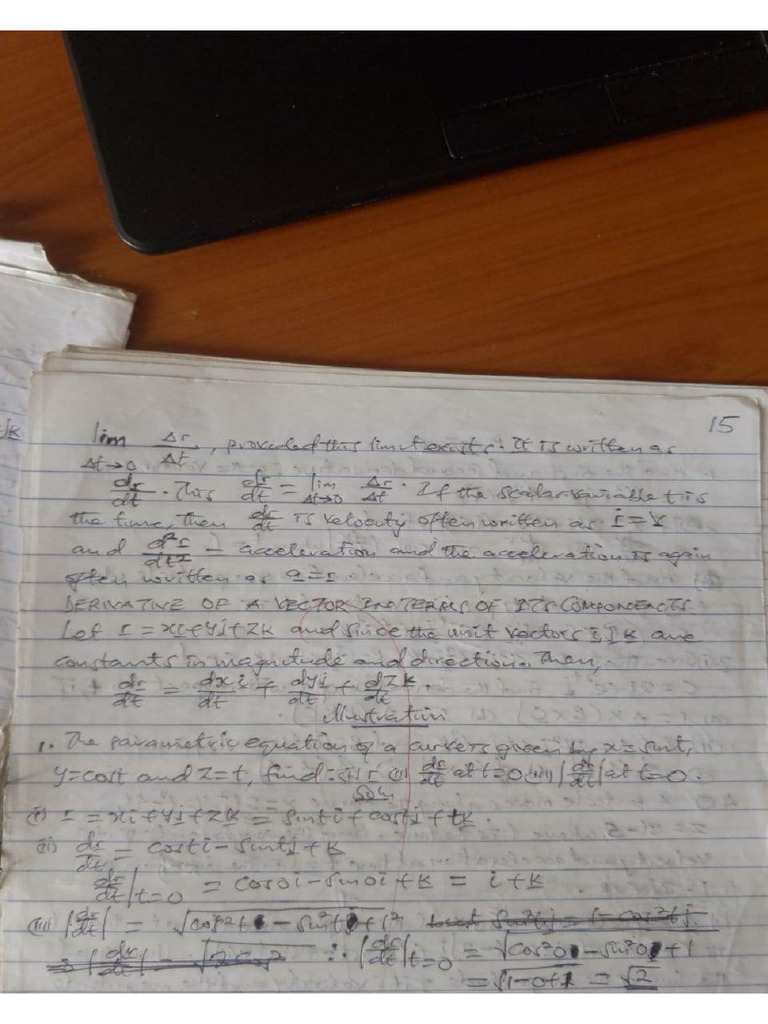 15
lim Δt→0 Δr/Δt, provided this limit exists. It is written as
dr/dt. This dr/dt = lim Δt→0 Δr/Δt. If the scalar variable t is
the time, then dr/dt is velocity often written as ṙ = v
and d²r/dt² – acceleration and the acceleration is again
often written as a = r
DERIVATIVE OF A VECTOR IN TERMS OF ITS COMPONENTS
Let r = xi + yj + zk and since the unit vectors i, j, k are
constants in magnitude and direction. Then,
dr/dt = dxi/dt + dyj/dt + dzk/dt.
Illustration
1. The parametric equation of a curve is given by x = sint,
y = cost and z = t, find: (i) r (ii) dr/dt at t=0 (iii) |dr/dt| at t=0.
Soln
(i) r = xi + yj + zk = sinti + costj + tk.
(ii) dr/dt = costi – sintj + k
dr/dt|t=0 = cos0i – sin0i + k = i + k
(iii) |dr/dt| = √cos²t – sin²t + 1²
∴ |dr/dt|t=0 = √cos²0 – sin²0 + 1
= √1-0+1 = √2